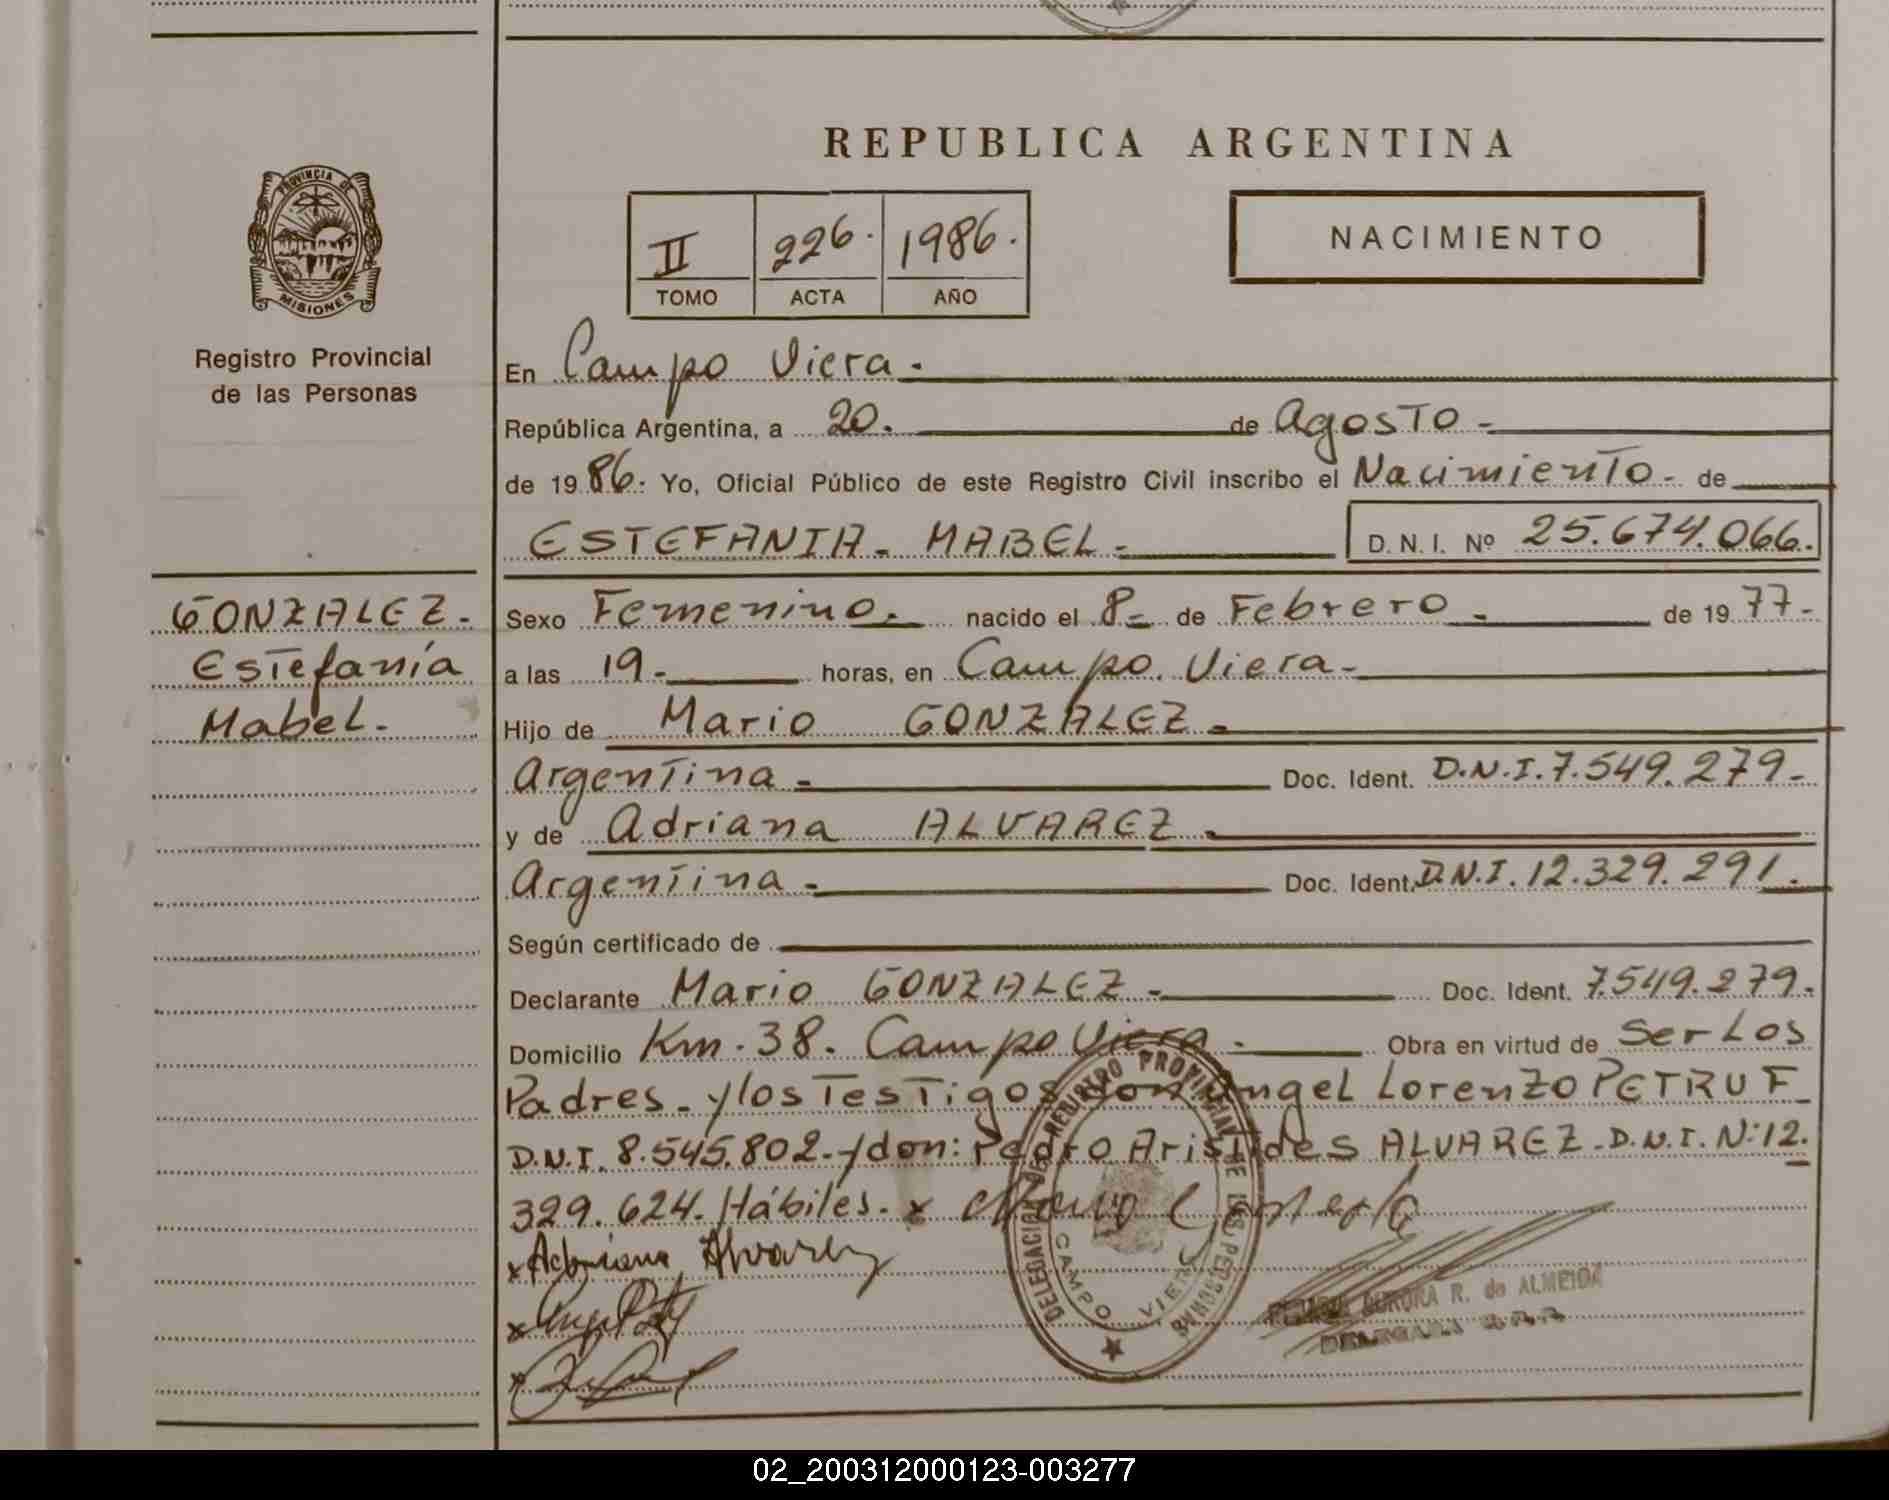 REPUBLICA ARGENTINA
PROVINCIA DE
MISIONES
Registro Provincial
de las Personas
II 226. 1986.
TOMO ACTA AÑO
NACIMIENTO
En Campo Viera.
República Argentina, a 20. de Agosto -
de 1986. Yo, Oficial Público de este Registro Civil inscribo el Nacimiento - de
ESTEFANIA - MABEL - D. N. I. Nº 25.674.066.
GONZALEZ -
Estefanía
Mabel.
Sexo Femenino. nacido el 8- de Febrero - de 1977-
a las 19- horas, en Campo. Viera -
Hijo de Mario GONZALEZ -
Argentina - Doc. Ident. D.N.I. 7.549.279-
y de Adriana ALVAREZ -
Argentina - Doc. Ident. D.N.I. 12.329.291.
Según certificado de
Declarante Mario GONZALEZ - Doc. Ident. 7.549.279.
Domicilio Km. 38. Campo Viera - Obra en virtud de Ser Los
Padres - y los Testigos don Angel Lorenzo PETRUF -
D.N.I. 8.545.802.- y don: Pedro Aristides ALVAREZ - D.N.I. N: 12.
329.624. Hábiles. x Mario
x Adriana Alvarez
x
x
DELEGACION DEL REGISTRO PROVINCIAL DE LAS PERSONAS
CAMPO VIERA
AURORA R. de ALMEIDA
02_200312000123-003277